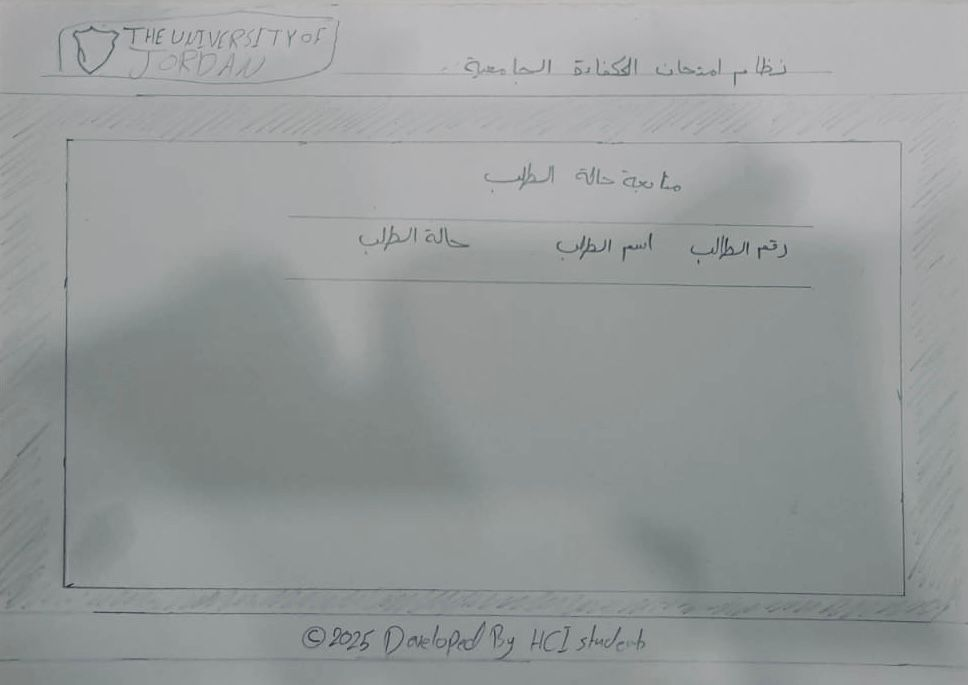 THE UNIVERSITY OF
JORDAN
نظام امتحان الكفاءة الجامعية
متابعة حالة الطلب
رقم الطالب اسم الطالب حالة الطلب
© 2025 Developed By HCI students